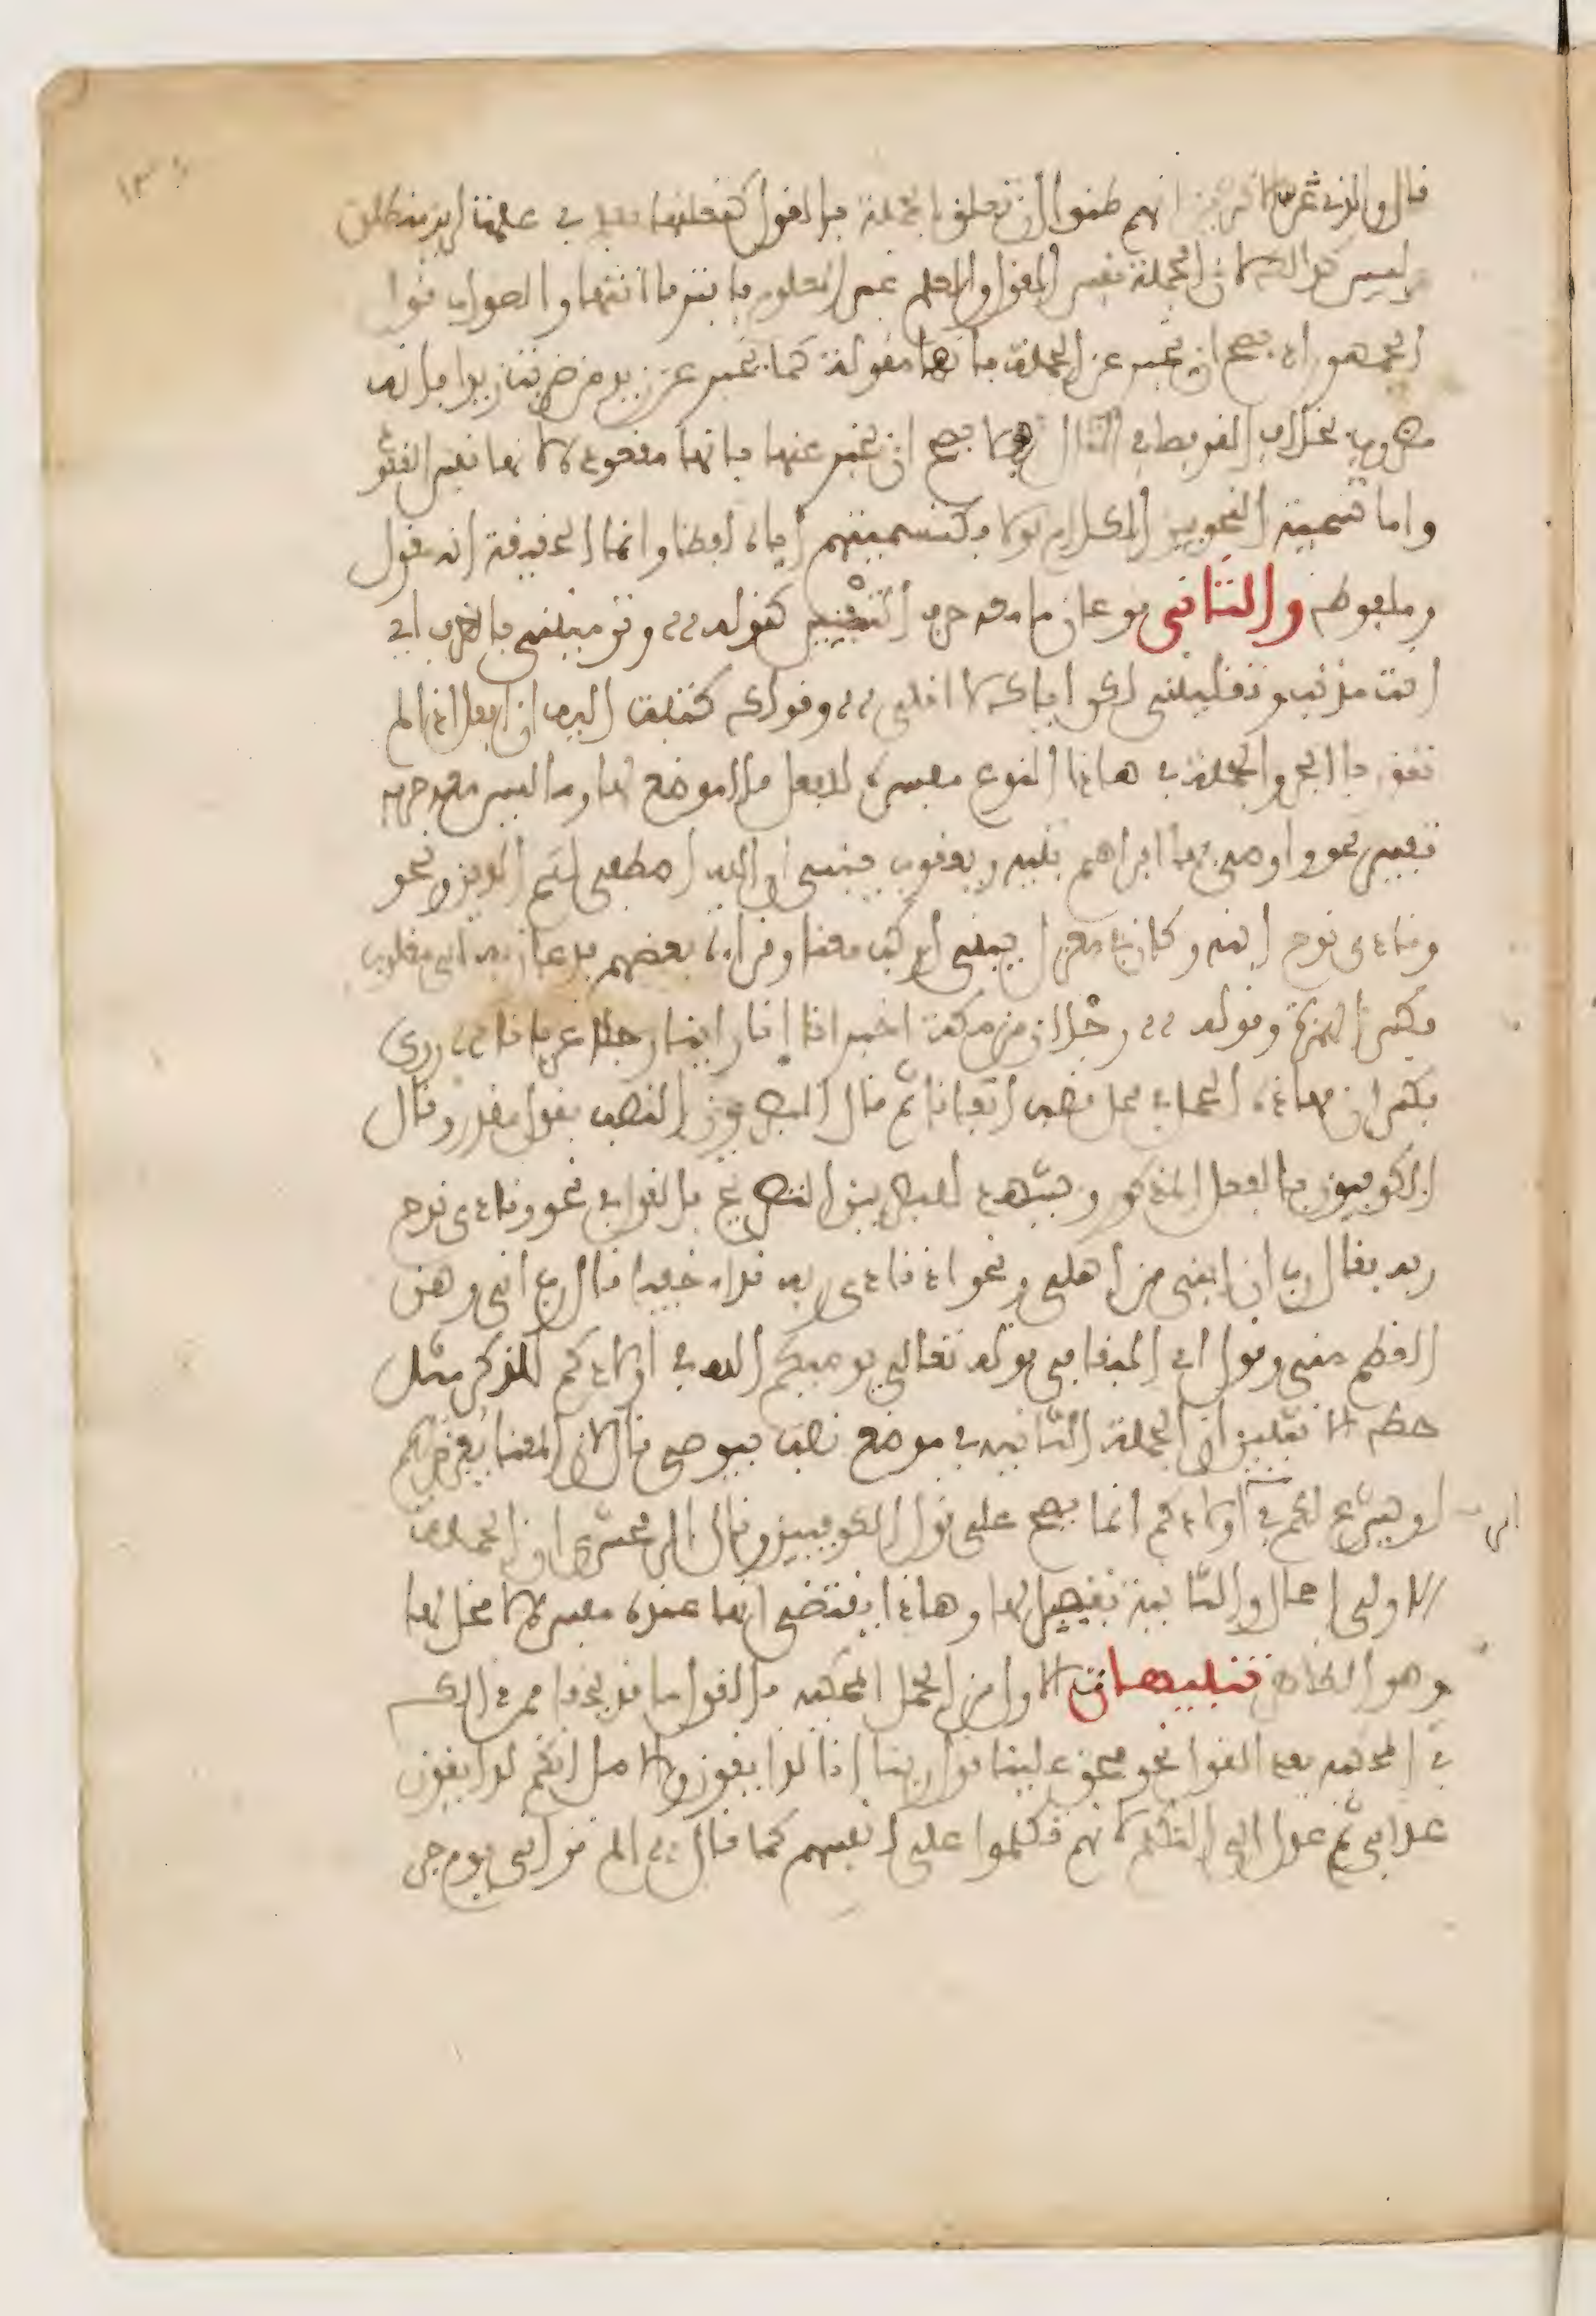 قال والذي غر الاكثرين انهم ظنوا ان تعلق الجملة بالقول كتعلقها بعلم في علمت لزيد منطلق
وليس كذلك لان الجملة نفس القول والعلم غير المعلوم فافترقا انتهى والصواب قول
الجمهور اذ يصح ان يخبر عن الجملة بانها مقولة كما يخبر عن زيد من ضربت زيدا بانه
مضروب بخلاف القرفصا في المثال فلا يصح ان يخبر عنها بانها مقعودة لانها نفس القعود
واما تسمية النحويين الكلام قولا فكتسميتهم اياه لفظا وانما الحقيقة انه مقول
وملفوظ والثاني نوعان ما معه حرف التفسير كقوله وترمينني بالطرف اي
انت مذنب وتقلينني لكن اياك لا اقلي وقولك كتبت اليه ان افعل اذا لم
تقدر باء الجر والجملة في هاذا النوع مفسرة للفعل فلا موضع لها وما ليس معه حرف
تفسير نحو واوصى بها ابراهيم بنيه ويعقوب يبني ان الله اصطفى لكم الدين ونحو
ونادى نوح ابنه وكان في معزل يبنى اركب معنا وقراءة بعضهم فدعا ربه اني مغلوب
بكسر الهمزة وقوله رجلان من مكة اخبرانا انا راينا رجلا عريانا روي
بكسر ان فهاذه الجمل في محل نصب اتفاقا ثم قال البصريون النصب بقول مقدر وقال
الكوفيون بالفعل المذكور ويشهد للبصريين التصريح بالقول في نحو ونادى نوح
ربه فقال رب ان ابني من اهلي ونحو اذ نادى ربه نداء خفيا قال رب اني وهن
العظم مني وقول ابي البقا في قوله تعالى يوصيكم الله في اولادكم للذكر مثل
حظ الانثيين ان الجملة الثانية في موضع نصب بيوصي قال لان المعنى يفرض لكم
او يشرع لكم في اولادكم انما يصح على قول الكوفيين وقال الزمخشري ان الجملة
الاولى اجمال والثانية تفصيل لها وهاذا يقتضي انها عنده مفسرة لا محل لها
وهو الظاهر تنبيهات الاول من الجمل المحكية بالقول ما قد يخفى فمن ذلك
في المحكية بعد القول نحو فحق علينا قول ربنا انا لذايقون والاصل انكم لذايقون
عذابي ثم عدل الى التكلم لانهم تكلموا على انفسهم كما قال الم تر اني يوم جو